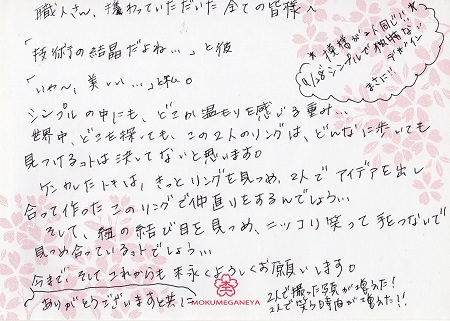 職人さん、携わっていただいた全ての皆様へ
「技術の結晶だよね…」と彼
「いやん、美しい…」と私。
シンプルの中にも、どこか温もりを感じる重み…
世界中、どこを探しても、この2人のリングは、どんなに歩いても
見つけるコトは決してないと思います。
ケンカしたトキは、きっとリングを見つめ、2人でアイデアを出し
合って作ったこのリングで仲直りをするんでしょう…
そして、紐の結び目を見つめ、ニッコリ笑って手をつないで
見つめ合っているコトでしょう…
今まで、そしてこれからも末永くよろしくお願いします。
ありがとうございますと共に
*模様が2人同じ!! *
シンプルで個性ない
デザイン
まさに…
MOKUMEGANEYA
2人で撮った写真が増えた!
2人で笑う時間が増えた!!